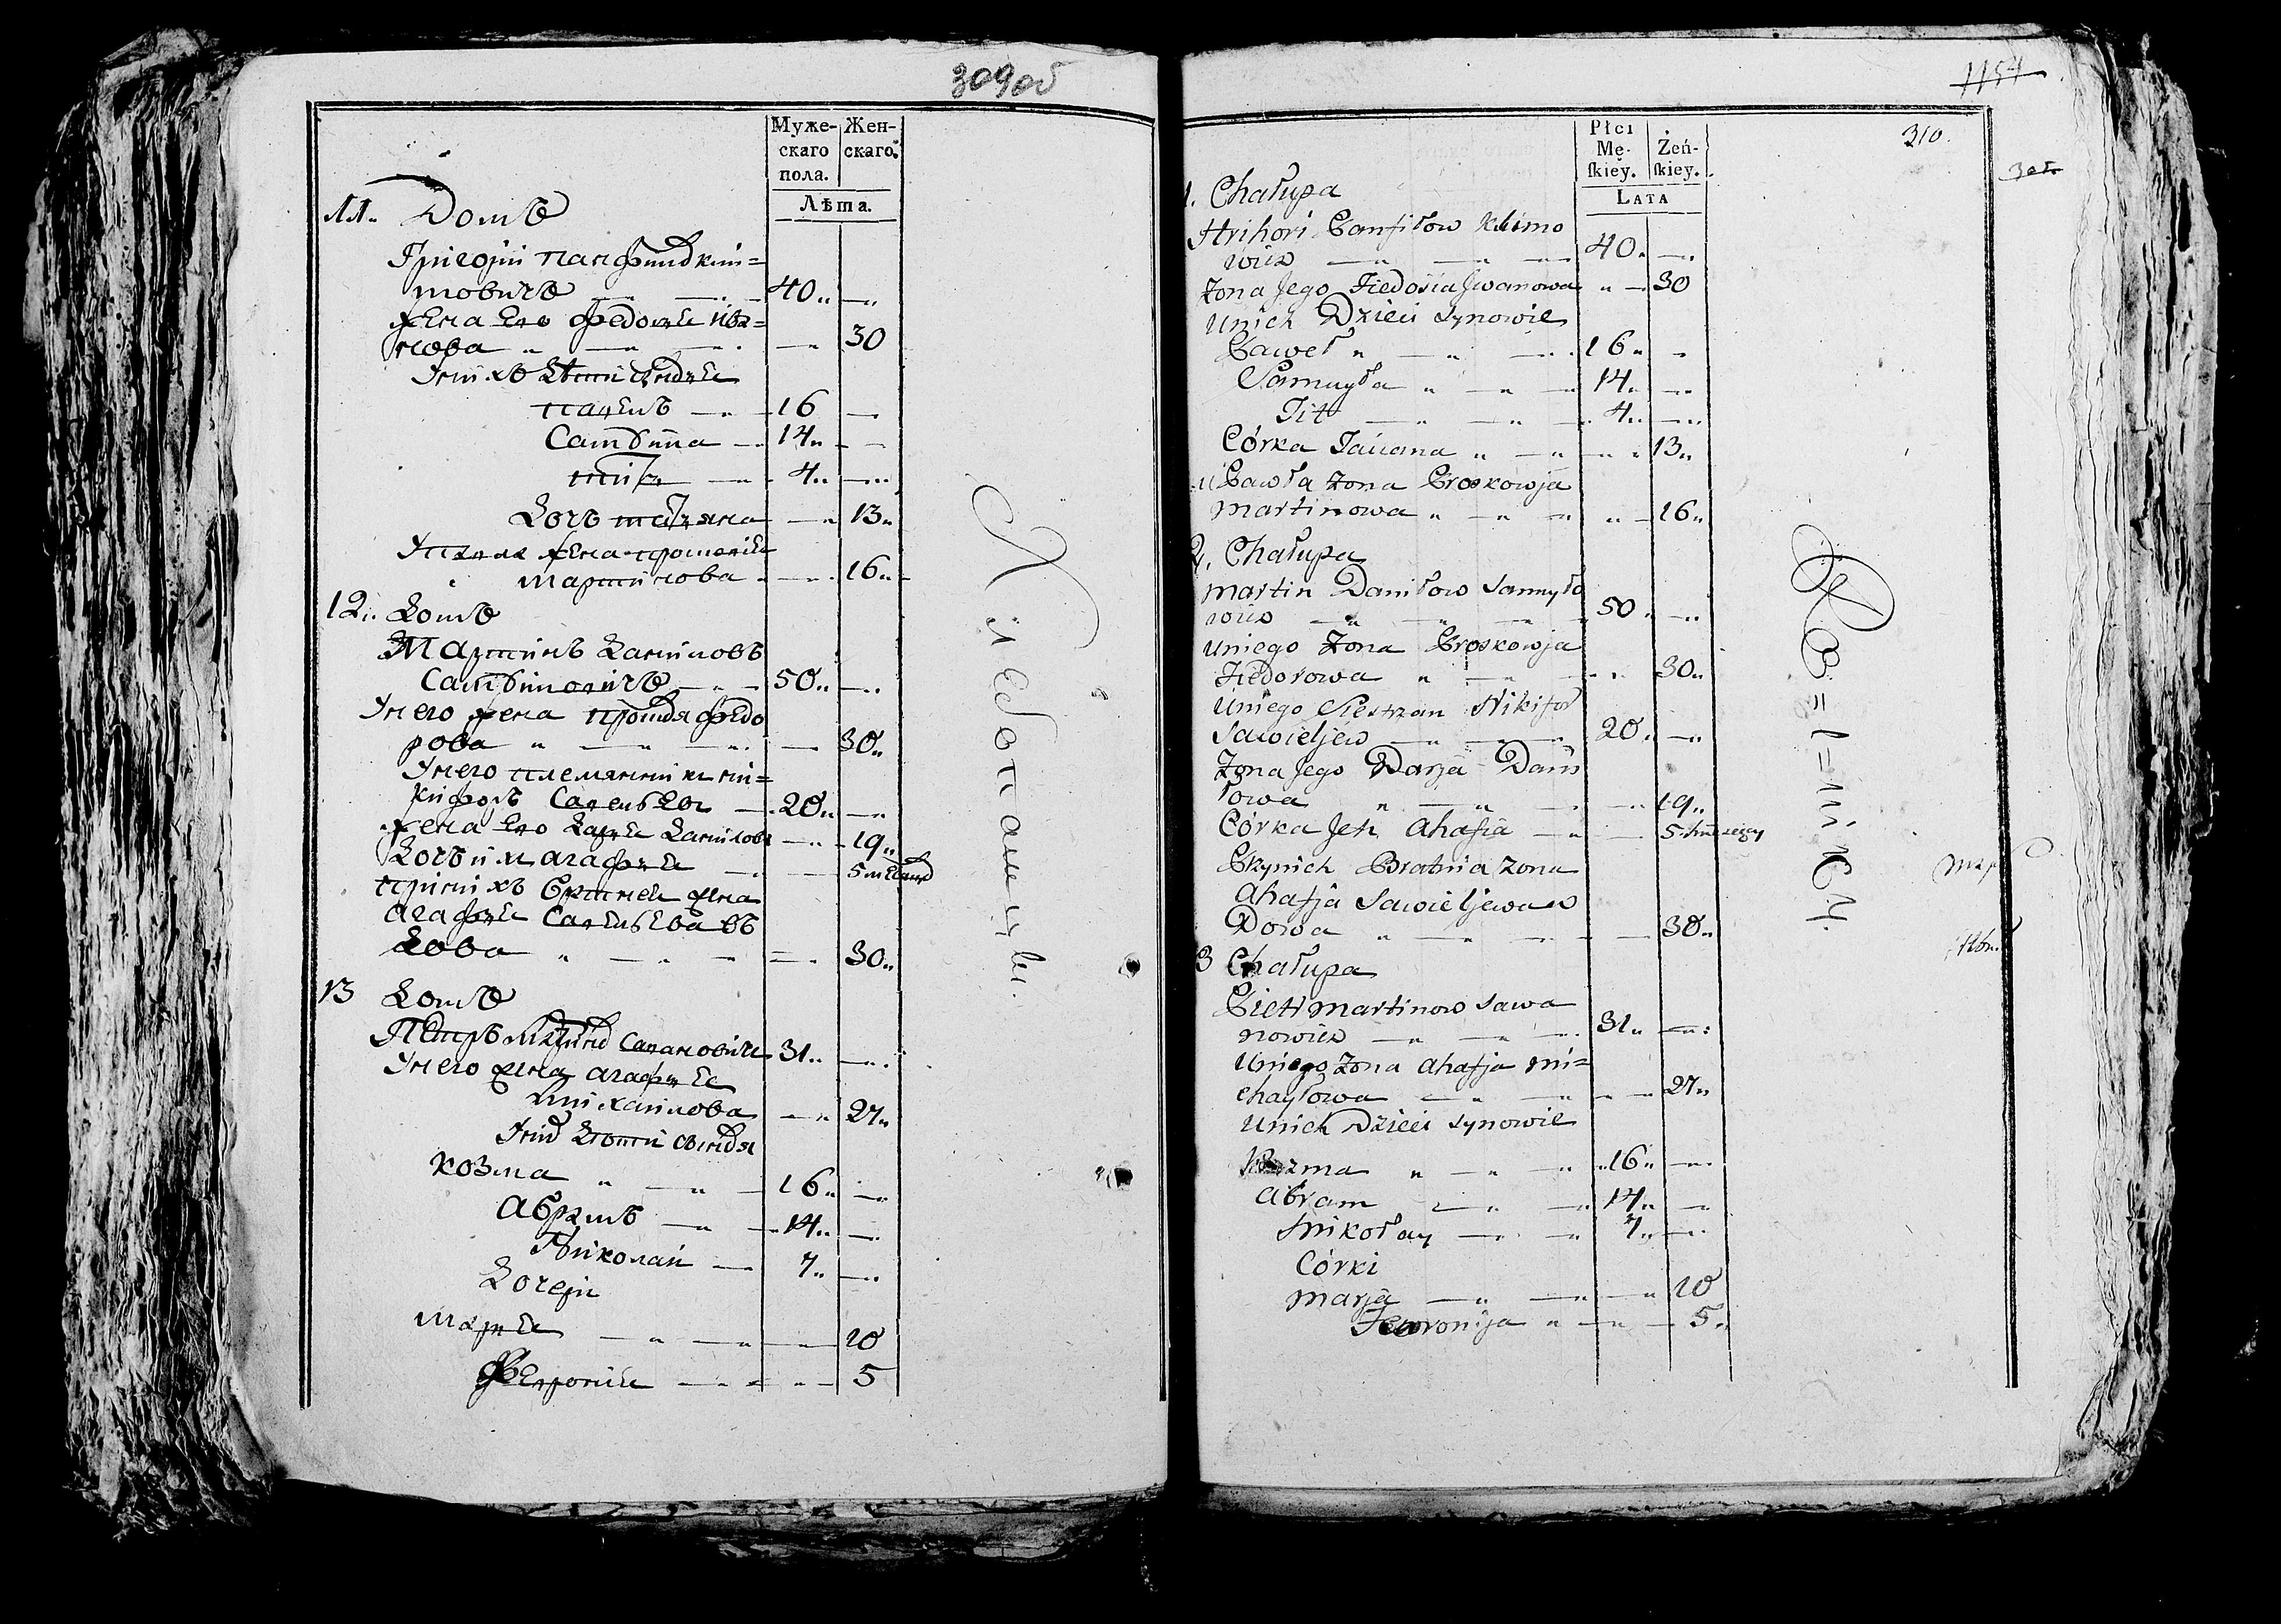 309 об
Муже-
скаго
пола.
Жен-
скаго.
Лѣта.
11. Домъ
Григорій Панфиловъ Кли=
мовичъ 40
Жена Его Федосія Ива=
нова 30
У них дѣти Синовя
Павелъ 16
Самуйла 14
Титъ 4
Дочь Татяна 13
У Павла Жена
Мартинова 16
12 Домъ
Мартинъ Даниловъ
Самуйловичъ 50
У него жена Федо
рова 30
У него племянникъ Ни=
кифоръ Савельевъ 20
Жена Его Дарія Данилова 19
Дочь их Агафія 5
При них братнея Жена
Агафія Савельева в
дова 30
13 Домъ
Петръ Савановичъ 31
У него жена Агафія
Михайлова 27
У них дѣти Синовя
Козма 16
Абрамъ 14
Николай 7
Дочери
Марія 10
Февронія 5
1154
310.
Płci
Mę-
ſkiey.
Żeń-
ſkiey.
LATA
1. Chałupa
Hrihori Panfiłow Klimo
wicz 40
Żona Jego Fiedosia Jwanowa 30
U nich Dzieci Synowie
Paweł 16
Samuyła 14
Tit 4
Córka Taciana 13
u Pawła Żona Proskowja
Martinowa 16
2. Chałupa
Martin Daniłow Samuyło
wicz 50
U niego Żona Proskowja
Fiedorowa 30
U niego Siestrzan Nikifor
Sawieljew 20
Żona Jego Darja Dani
łowa 19
Córka Jch Ahafia 5
Przy nich Bratnia Żona
Ahafja Sawieljewa w
Dowa 30
3 Chałupa
Pietr Martinow Sawa
nowicz 31
U niego Żona Ahafja Mi=
chayłowa 27
U nich Dzieci Synowie
Kuzma 16
Abram 14
Mikołay 7
Córki
Marja 10
Fewronija 5